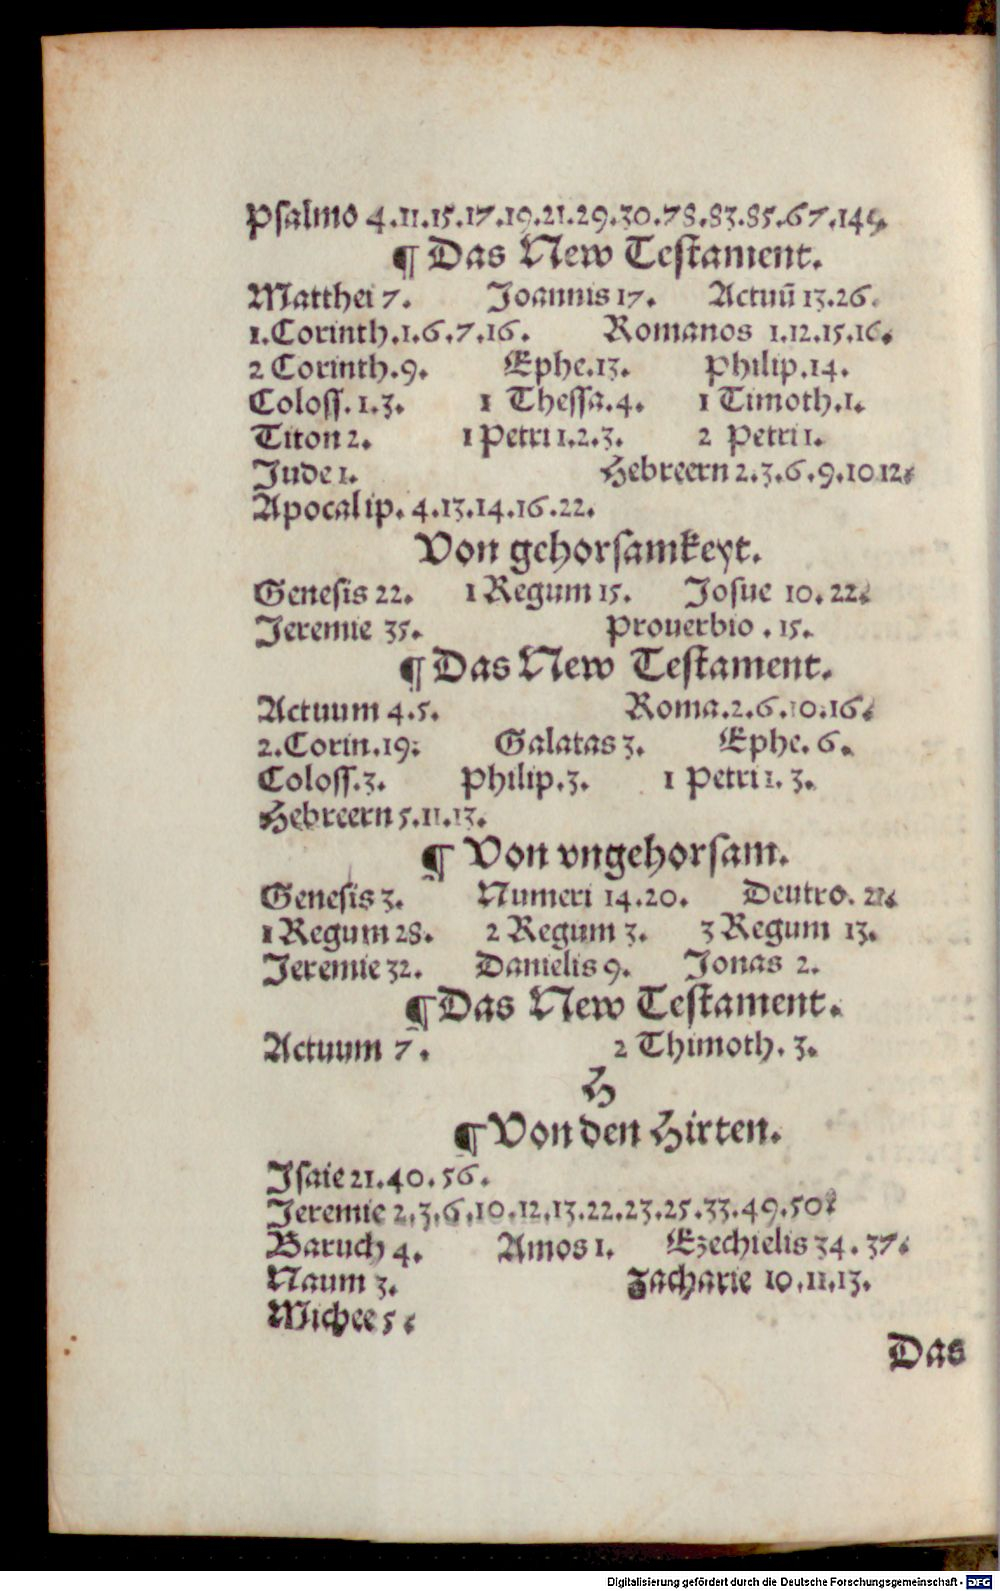 Psalmo 4.11.15.17.19.21.29.30.78.83.85.67.149.
¶ Das New Testament.
Matthei 7. Joannis 17. Actuū 13.26.
1.Corinth.1.6.7.16. Romanos 1.12.15.16.
2 Corinth.9. Ephe.13. Philip.14.
Coloss.1.3. 1 Thessa.4. 1 Timoth.1.
Titon 2. 1 Petri 1.2.3. 2 Petri 1.
Jude 1. Hebreern 2.3.6.9.10 12.
Apocalip. 4.13.14.16.22.
Von gehorsamkeyt.
Genesis 22. 1 Regum 15. Josue 10.22.
Jeremie 35. Prouerbio .15.
¶ Das New Testament.
Actuum 4.5. Roma.2.6.10.16.
2.Corin.19. Galatas 3. Ephe. 6.
Coloss.3. Philip.3. 1 Petri 1. 3.
Hebreern 5.11.13.
¶ Von vngehorsam.
Genesis 3. Numeri 14.20. Deutro.
1 Regum 28. 2 Regum 3. 3 Regum 13.
Jeremie 32. Danielis 9. Jonas 2.
¶ Das New Testament.
Actuum 7. 2 Thimoth. 3.
H
¶ Von den Hirten.
Jsaie 21.40.56.
Jeremie 2.3.6.10.12.13.22.23.25.33.49.50.
Baruch 4. Amos 1. Ezechielis 34.37.
Naum 3. Zacharie 10.11.13.
Michee 5.
Das
Digitalisierung gefördert durch die Deutsche Forschungsgemeinschaft - DFG